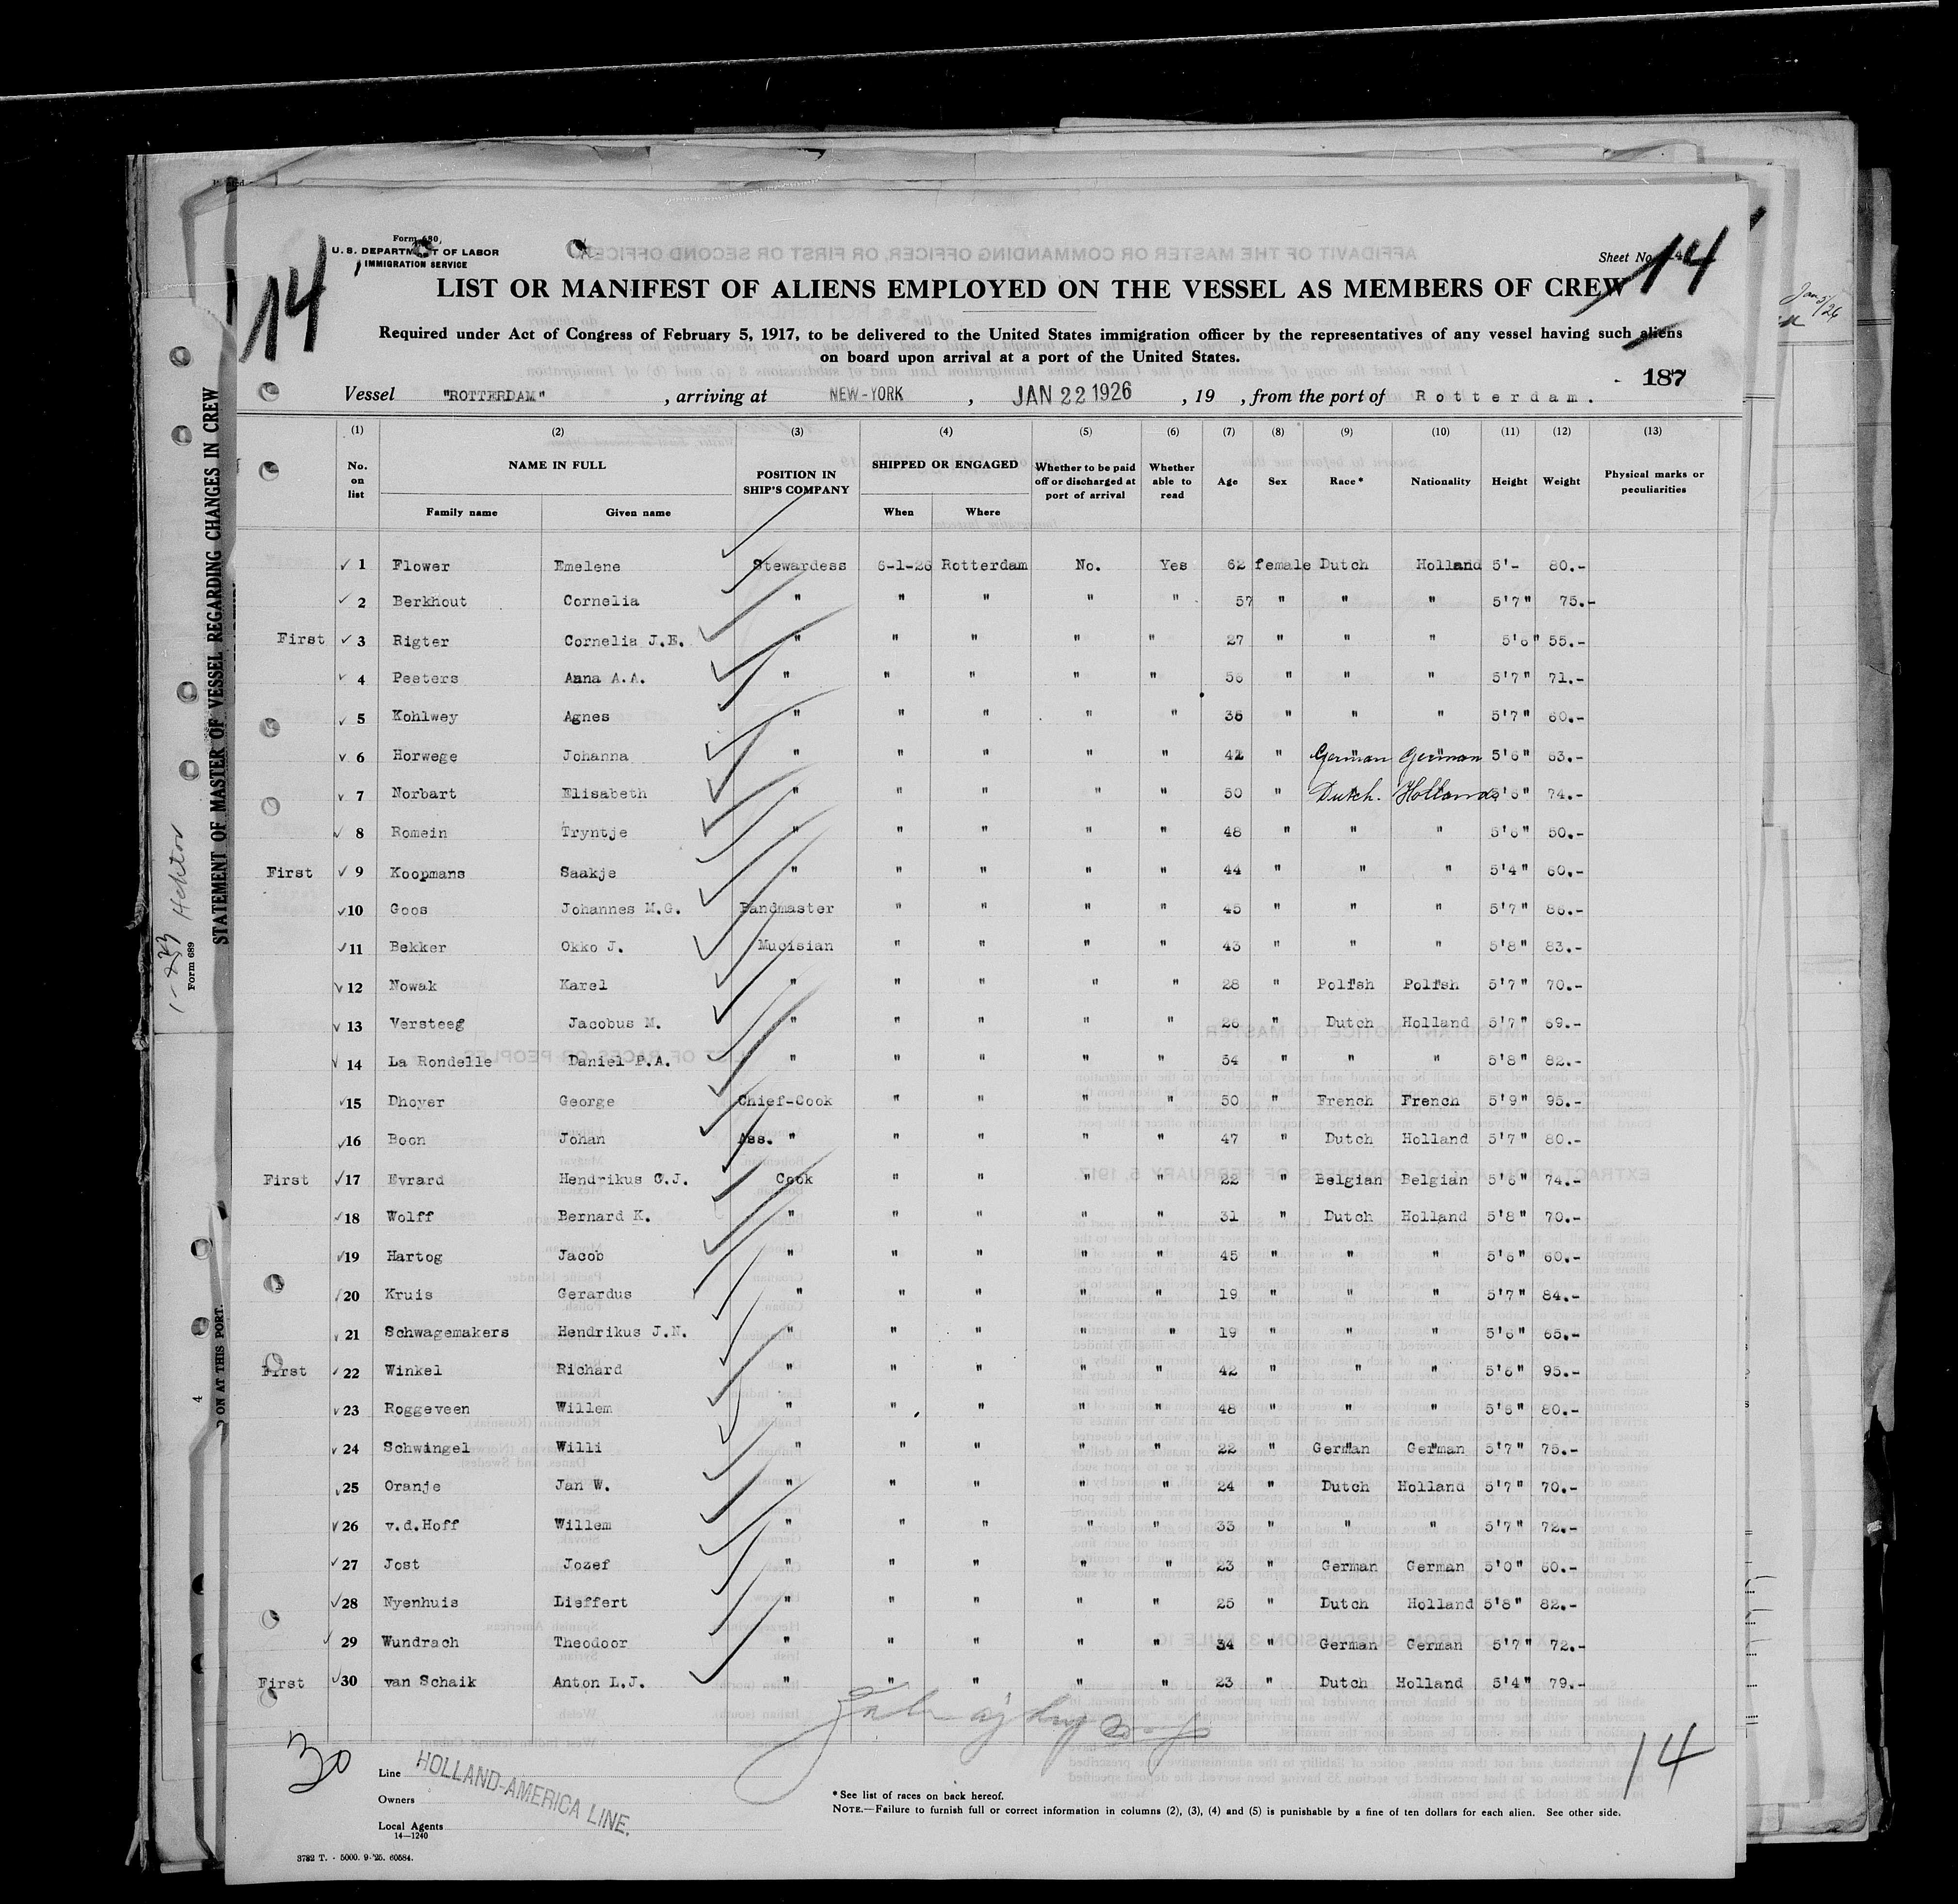 Form 680,
U. S. DEPARTMENT OF LABOR
IMMIGRATION SERVICE
Sheet No. 14
14
14
LIST OR MANIFEST OF ALIENS EMPLOYED ON THE VESSEL AS MEMBERS OF CREW
Required under Act of Congress of February 5, 1917, to be delivered to the United States immigration officer by the representatives of any vessel having such aliens
on board upon arrival at a port of the United States.
187
Vessel "ROTTERDAM", arriving at NEW-YORK, JAN 22 1926, 19 , from the port of Rotterdam.
(1) (2) (3) (4) (5) (6) (7) (8) (9) (10) (11) (12) (13)
No. on list NAME IN FULL Family name Given name POSITION IN SHIP'S COMPANY SHIPPED OR ENGAGED When Where Whether to be paid off or discharged at port of arrival Whether able to read Age Sex Race* Nationality Height Weight Physical marks or peculiarities
1 Flower Emelene Stewardess 6-1-26 Rotterdam No. Yes 62 female Dutch Holland 5'- 80.-
2 Berkhout Cornelia " " " " " 57 " " " 5'7" 75.-
First 3 Rigter Cornelia J.E. " " " " " 27 " " " 5'6" 55.-
4 Peeters Anna A.A. " " " " " 56 " " " 5'7" 71.-
5 Kohlwey Agnes " " " " " 36 " " " 5'7" 60.-
6 Horwege Johanna " " " " " 42 " German German 5'6" 63.-
7 Norbart Elisabeth " " " " " 50 " Dutch. Holland 5'6" 74.-
8 Romein Tryntje " " " " " 48 " " " 5'6" 50.-
First 9 Koopmans Saakje " " " " " 44 " " " 5'4" 60.-
10 Goos Johannes M.G. Bandmaster " " " " 45 " " " 5'7" 86.-
11 Bekker Okko J. Mucisian " " " " 43 " " " 5'8" 83.-
12 Nowak Karel " " " " " 28 " Polish Polish 5'7" 70.-
13 Versteeg Jacobus M. " " " " " 26 " Dutch Holland 5'7" 69.-
14 La Rondelle Daniel P.A. " " " " " 54 " " " 5'8" 82.-
15 Dhoyer George Chief-Cook " " " " 50 " French French 5'9" 95.-
16 Boon Johan Ass. " " " " " 47 " Dutch Holland 5'7" 80.-
First 17 Evrard Hendrikus C.J. Cook " " " " 22 " Belgian Belgian 5'6" 74.-
18 Wolff Bernard K. " " " " " 31 " Dutch Holland 5'8" 70.-
19 Hartog Jacob " " " " " 45 " " " 5'6" 60.-
20 Kruis Gerardus " " " " " 19 " " " 5'7" 84.-
21 Schwagemakers Hendrikus J.N. " " " " " 19 " " " 5'6" 65.-
First 22 Winkel Richard " " " " " 42 " " " 5'6" 95.-
23 Roggeveen Willem " " " " " 48 " " " 5'6" 80.-
24 Schwingel Willi " " " " " 22 " German German 5'7" 75.-
25 Oranje Jan W. " " " " " 24 " Dutch Holland 5'7" 70.-
26 v.d.Hoff Willem " " " " " 33 " " " 5'7" 72.-
27 Jost Jozef " " " " " 23 " German German 5'0" 60.-
28 Nyenhuis Lieffert " " " " " 25 " Dutch Holland 5'8" 82.-
29 Wundrach Theodoor " " " " " 34 " German German 5'7" 72.-
First 30 van Schaik Anton L.J. " " " " " 23 " Dutch Holland 5'4" 79.-
30
14
Line HOLLAND-AMERICA LINE.
Owners
Local Agents
14—1240
*See list of races on back hereof.
NOTE.—Failure to furnish full or correct information in columns (2), (3), (4) and (5) is punishable by a fine of ten dollars for each alien. See other side.
3782 T. - 5000. 9-'25. 60584.
STATEMENT OF MASTER OF VESSEL REGARDING CHANGES IN CREW
Form 689
D ON AT THIS PORT.
4